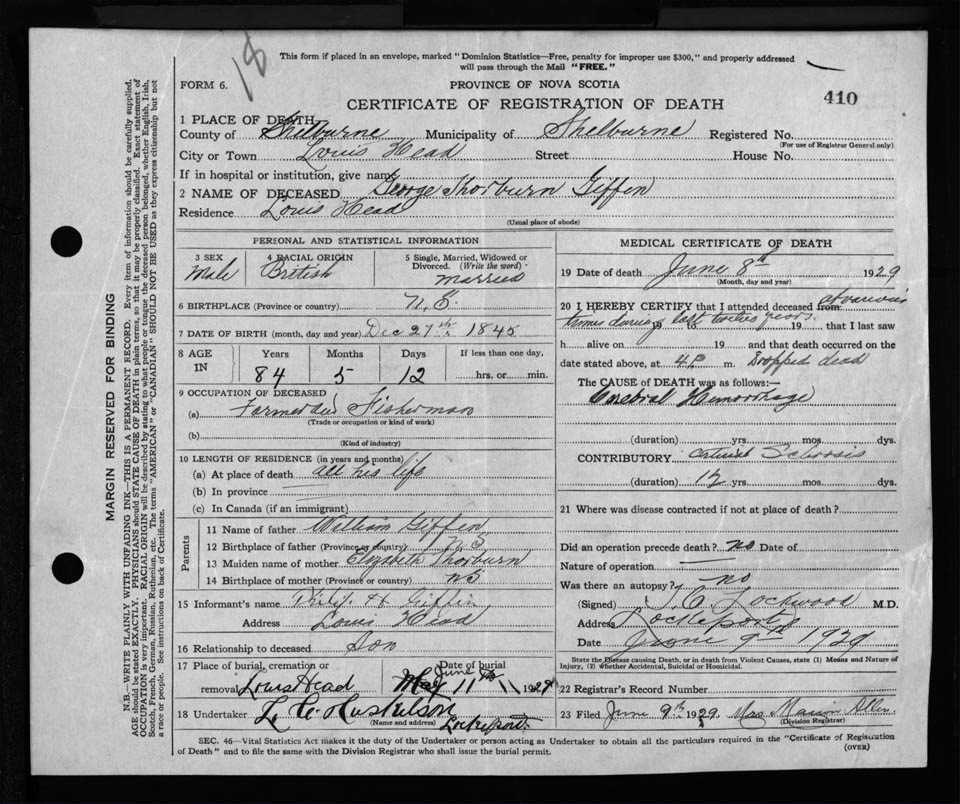 18
This form if placed in an envelope, marked "Dominion Statistics—Free, penalty for improper use $300," and properly addressed
will pass through the Mail "FREE."
FORM 6.
PROVINCE OF NOVA SCOTIA
CERTIFICATE OF REGISTRATION OF DEATH
410
1 PLACE OF DEATH
County of Shelburne Municipality of Shelburne Registered No.
(For use of Registrar General only)
City or Town Louis Head Street House No.
If in hospital or institution, give name
2 NAME OF DECEASED George Thorburn Giffen
Residence Louis Head
(Usual place of abode)
PERSONAL AND STATISTICAL INFORMATION
3 SEX Male
4 RACIAL ORIGIN British
5 Single, Married, Widowed or Divorced. (Write the word) Married
6 BIRTHPLACE (Province or country) N.S.
7 DATE OF BIRTH (month, day and year) Dec 27th 1845
8 AGE IN
Years Months Days If less than one day,
84 5 12 hrs. or min.
9 OCCUPATION OF DECEASED
(a) Farmer and Fisherman
(Trade or occupation or kind of work)
(b)
(Kind of industry)
10 LENGTH OF RESIDENCE (in years and months)
(a) At place of death all his life
(b) In province
(c) In Canada (if an immigrant)
Parents
11 Name of father William Giffen
12 Birthplace of father (Province or country) N S
13 Maiden name of mother Elizabeth Thorburn
14 Birthplace of mother (Province or country) NS
15 Informant's name Philip H Giffin
Address Louis Head
16 Relationship to deceased Son
17 Place of burial, cremation or removal Louis Head
Date of burial June May 11th 1929
18 Undertaker L. C. Huskilson
(Name and address) Lockeport
MEDICAL CERTIFICATE OF DEATH
19 Date of death June 8th 1929
(Month, day and year)
20 I HEREBY CERTIFY that I attended deceased from at various
times during to last twelve years. 19 that I last saw
h alive on 19 and that death occurred on the
date stated above, at 4 P. m. Dropped dead
The CAUSE of DEATH was as follows:—
Cerebral Hemorrhage
(duration) yrs. mos. dys.
CONTRIBUTORY Sclerosis
(duration) 12 yrs. mos. dys.
21 Where was disease contracted if not at place of death?
Did an operation precede death? no Date of
Nature of operation
Was there an autopsy? no
(Signed) Lockwood M.D.
Address Lockeport
Date June 9th 1929
State the Disease causing Death, or in death from Violent Causes, state (1) Means and Nature of
Injury, (2) whether Accidental, Suicidal or Homicidal.
22 Registrar's Record Number
23 Filed June 9th 1929. Mrs Allen
(Division Registrar)
SEC. 46—Vital Statistics Act makes it the duty of the Undertaker or person acting as Undertaker to obtain all the particulars required in the "Certificate of Registration
of Death" and to file the same with the Division Registrar who shall issue the burial permit.
(OVER)
MARGIN RESERVED FOR BINDING
N.B.—WRITE PLAINLY WITH UNFADING INK—THIS IS A PERMANENT RECORD. Every item of information should be carefully supplied.
AGE should be stated EXACTLY. PHYSICIANS should STATE CAUSE OF DEATH in plain terms, so that it may be properly classified. Exact statement of
OCCUPATION is very important. RACIAL ORIGIN will be described by stating to what people or tongue the deceased person belonged, whether English, Irish,
Scotch, French, German, Russian, Ruthenian, etc. The terms "AMERICAN" or "CANADIAN" SHOULD NOT BE USED as they express citizenship but not
a race or people. See instructions on back of Certificate.